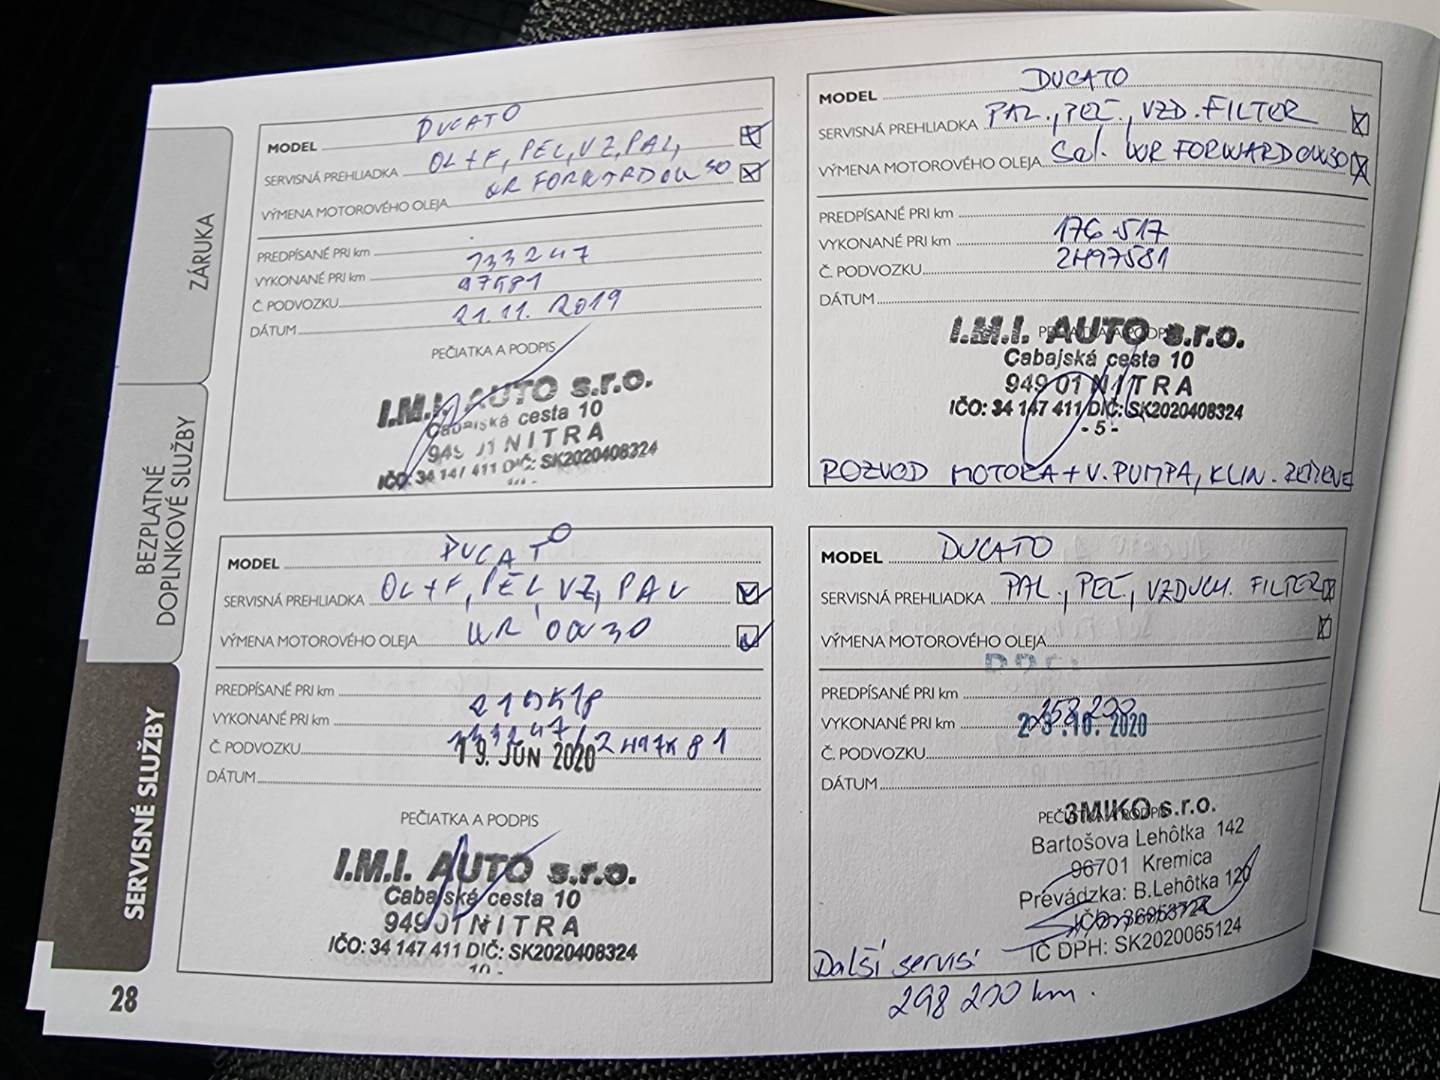 ZÁRUKA
BEZPLATNÉ
DOPLNKOVÉ SLUŽBY
SERVISNÉ SLUŽBY
28
MODEL DUCATO
SERVISNÁ PREHLIADKA OL+F, PEL, VZ, PAL,
VÝMENA MOTOROVÉHO OLEJA WR FORWARD OW30
PREDPÍSANÉ PRI km
VYKONANÉ PRI km 133247
Č. PODVOZKU 97581
DÁTUM 21.11.2019
PEČIATKA A PODPIS
I.M.I. AUTO s.r.o.
Cabajská cesta 10
949 01 NITRA
IČO: 34 147 411 DIČ: SK2020408324
MODEL DUCATO
SERVISNÁ PREHLIADKA PAL., PEĽ., VZD. FILTER
VÝMENA MOTOROVÉHO OLEJA Sel. WR FORWARD OW30
PREDPÍSANÉ PRI km
VYKONANÉ PRI km 176 517
Č. PODVOZKU 2H97581
DÁTUM
PEČIATKA A PODPIS
I.M.I. AUTO s.r.o.
Cabajská cesta 10
949 01 NITRA
IČO: 34 147 411 DIČ: SK2020408324
- 5 -
ROZVOD MOTORA + V. PUMPA, KLIN. REMENE
MODEL DUCATO
SERVISNÁ PREHLIADKA OL+F, PEL VZ, PAL
VÝMENA MOTOROVÉHO OLEJA WR OW30
PREDPÍSANÉ PRI km
VYKONANÉ PRI km
Č. PODVOZKU 133247/2H97581
19. JÚN 2020
DÁTUM
PEČIATKA A PODPIS
I.M.I. AUTO s.r.o.
Cabajská cesta 10
949 01 NITRA
IČO: 34 147 411 DIČ: SK2020408324
10 -
MODEL DUCATO
SERVISNÁ PREHLIADKA PAL., PEĽ., VZDUCH. FILTER
VÝMENA MOTOROVÉHO OLEJA
PREDPÍSANÉ PRI km
VYKONANÉ PRI km .10.2020
Č. PODVOZKU
DÁTUM
PEČIATKA A PODPIS
3MIKO s.r.o.
Bartošova Lehôtka 142
96701 Kremica
Prevádzka: B.Lehôtka 120
IČ DPH: SK2020065124
Další servis:
298 200 km.